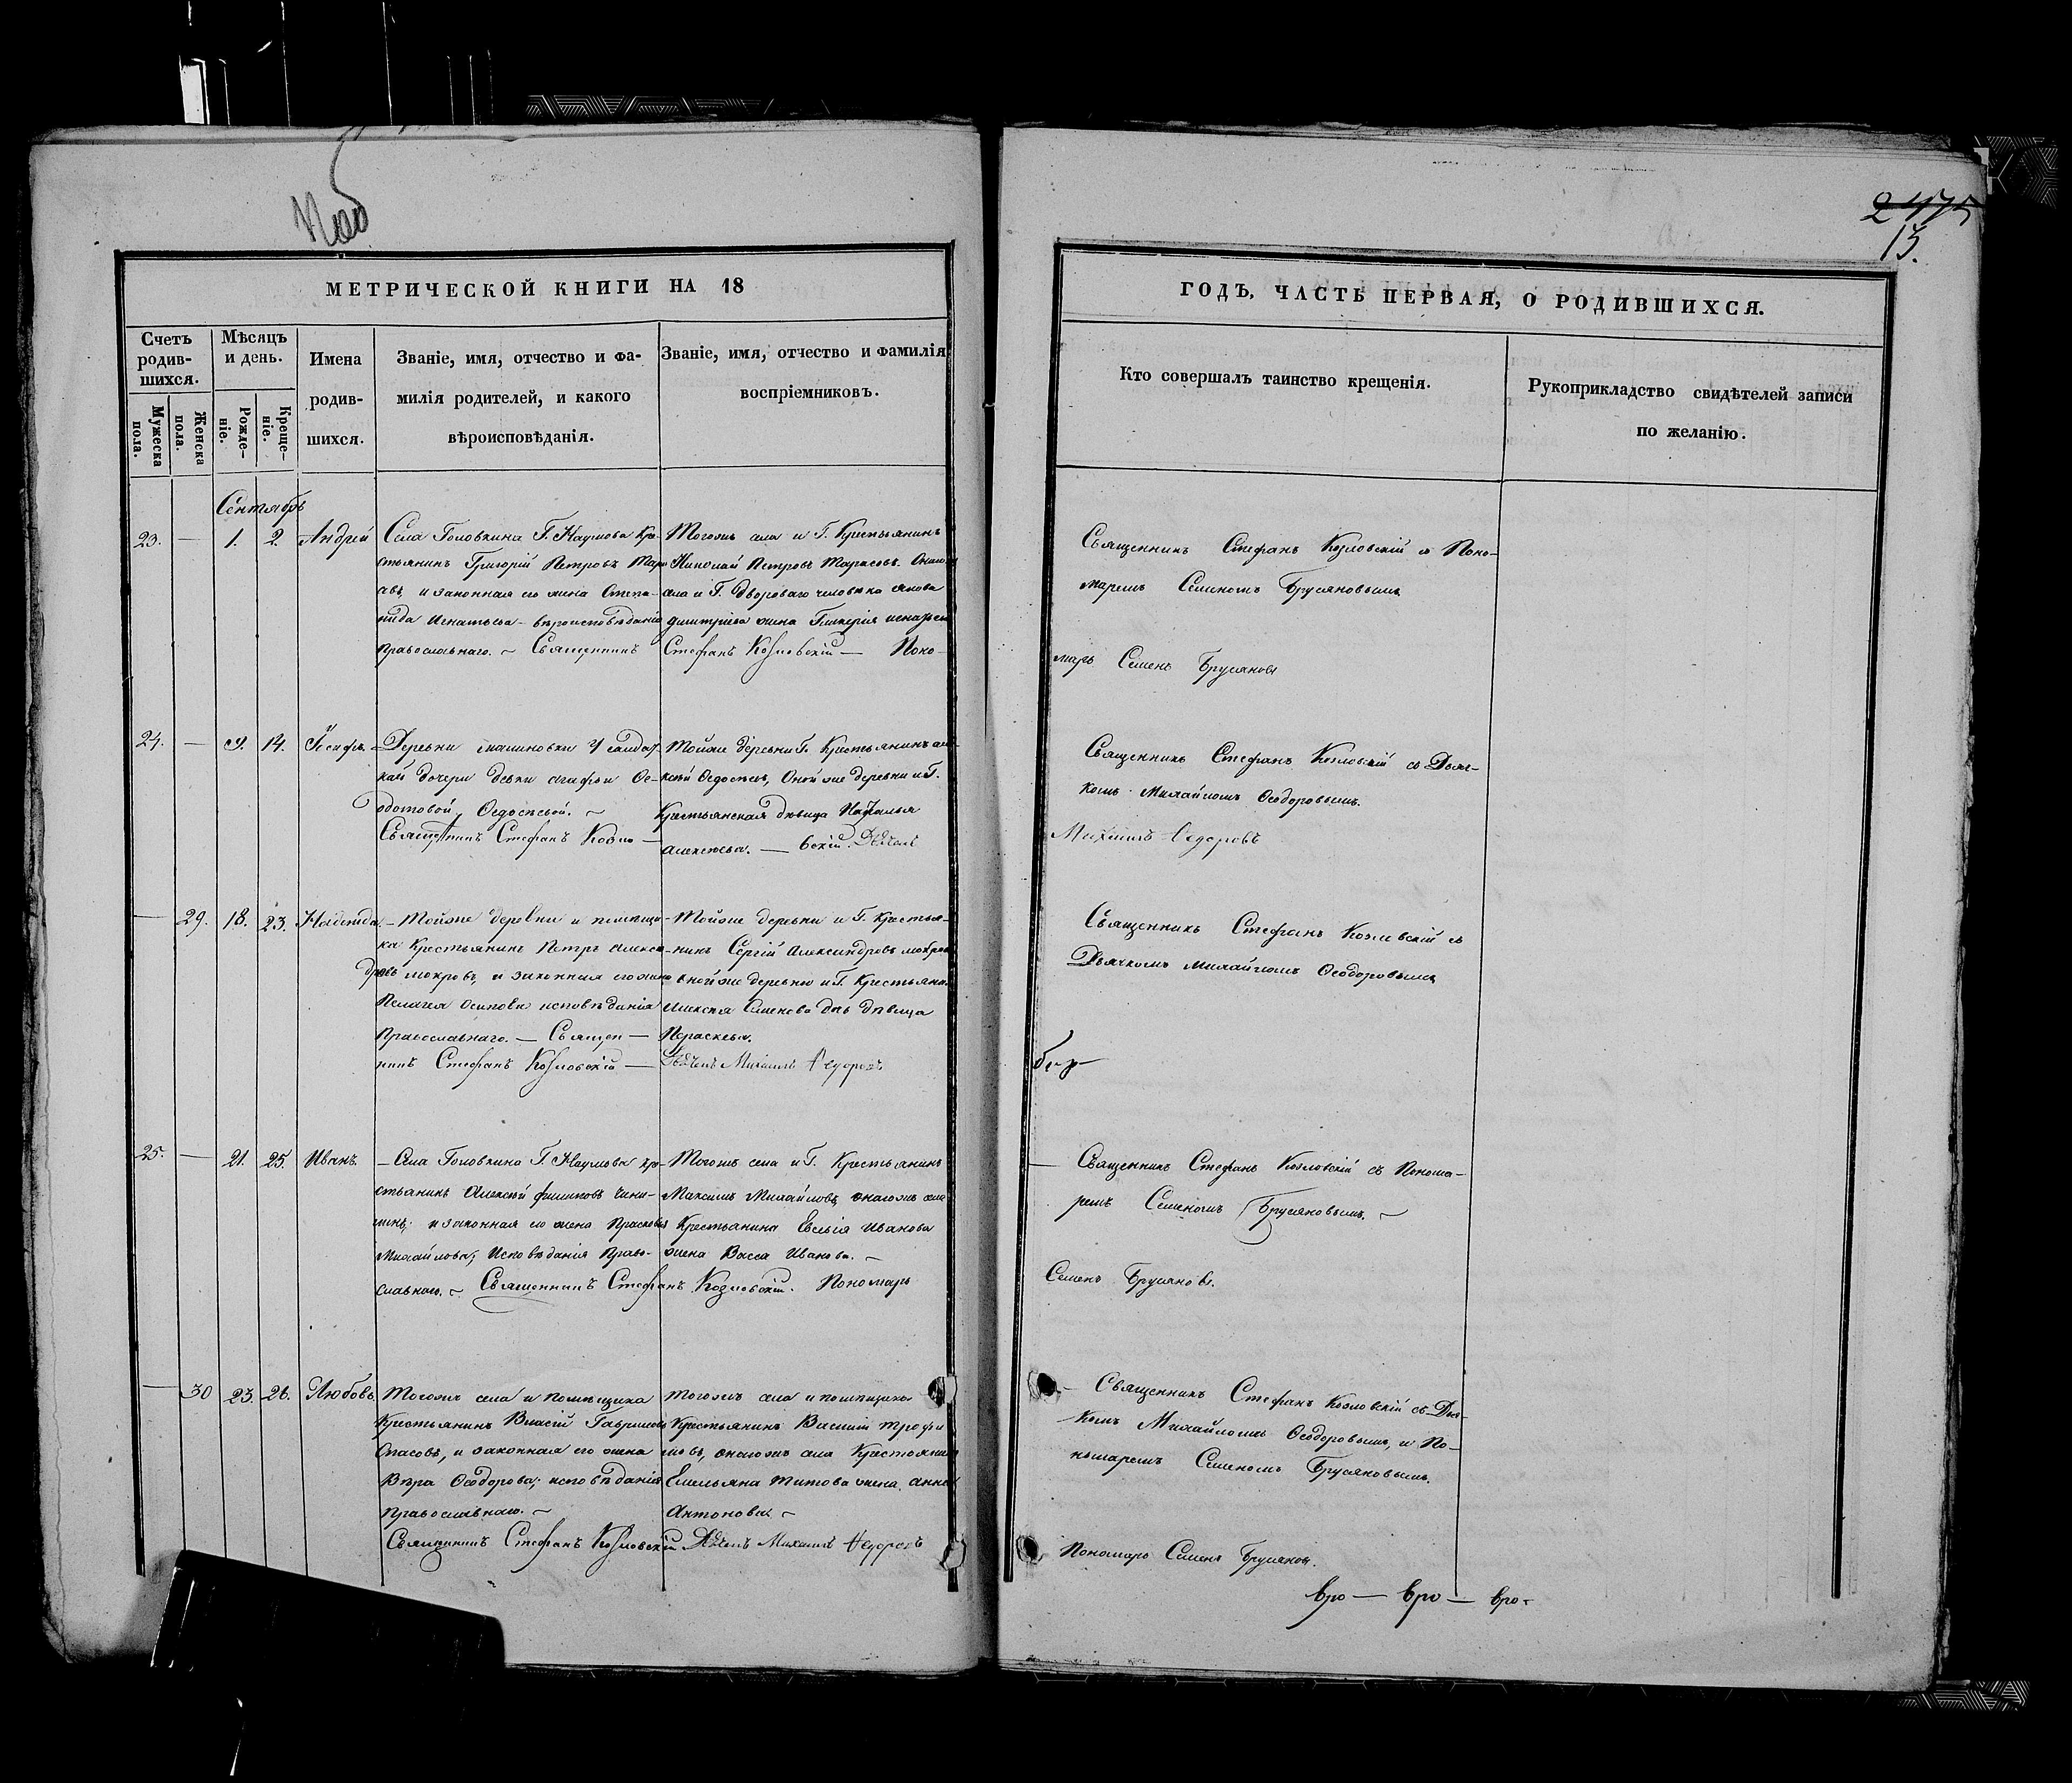 2475
13.
МЕТРИЧЕСКОЙ КНИГИ НА 18
ГОДЪ, ЧАСТЬ ПЕРВАЯ, О РОДИВШИХСЯ.
Счетъ
родив-
шихся.
Мужеска
пола.
Женска
пола.
Мѣсяцъ
и день.
Рожде-
ніе.
Креще-
ніе.
Имена
родив-
шихся.
Званіе, имя, отчество и фа-
милія родителей, и какого
вѣроисповѣданія.
Званіе, имя, отчество и фамилія
воспріемниковъ.
Кто совершалъ таинство крещенія.
Рукоприкладство свидѣтелей записи
по желанію.
Сентябрь
23. — 1. 2. Андрей
Села Головкина Г. Наумова Кре-
стьянинъ Григорій Петровъ Тара-
совъ, и законная его жена Степа-
нида Игнатьева - вѣроисповѣданія
православнаго. ~ Священникъ
Тогожъ села и Г. Крестьянинъ
Николай Петровъ Тарасовъ.
села и Г. Двороваго человѣка Якова
Димитріева жена Гликерія
Стефанъ Козловскій — Поно-
Священникъ Стефанъ Козловскій съ Поно-
маремъ Семеномъ Брусяновымъ
марь Семенъ Брусяновъ
24. — 9. 14. Іосифъ
Деревни Малиновки
кай дочери девки Агафьи Ѳе-
одотовой, Ѳедосѣевой. ~
Священникъ Стефанъ Козло—
Тойже деревни Г. Крестьянинъ Але-
ксѣй Ѳедосѣевъ, Оной же деревни и Г.
Крестьянская дѣвица Наталья
Алексѣева. — вскій. Дьячекъ
Священникъ Стефанъ Козловскій съ Дьяч-
комъ Михайломъ Ѳеодоровымъ.
Михаилъ Ѳедоровъ
— 29. 18. 23. Надежда
Тойже деревни и помѣщи-
ка Крестьянинъ Петръ Алексан-
дровъ Мокровъ, и законная его жена
Пелагея Осипова исповѣданія
Православнаго. — Священ—
никъ Стефанъ Козловскій —
Тойже деревни и Г. Крестья-
нинъ Сергій Александровъ Мокровъ
оной же деревни и Г. Крестьяни
Алексѣя Семенова дочь дѣвица
Параскева.
Дьячекъ Михаилъ Ѳедоровъ
Священникъ Стефанъ Козловскій съ
Дьячкомъ Михайломъ Ѳеодоровымъ
25. — 21. 25. Иванъ
Села Головкина Г. Наумова Кре-
стьянинъ Алексѣй Филиповъ Чини-
кинъ, и законная его жена Прасковья
Михайлова; Исповѣданія Право-
славнаго. ~ Священникъ Стефанъ Козловскій. Пономарь
Тогожъ села и Г. Крестьянинъ
Максимъ Михайловъ, онагожъ села
Крестьянина Евсѣія Иванова
жена Васса Иванова. ~
Священникъ Стефанъ Козловскій съ Понома-
ремъ Семеномъ Брусяновымъ. ~
Семенъ Брусяновъ.
— 30 23. 26. Любовь
Тогожъ села и помѣщика
Крестьянинъ Власій Гавриловъ
Спасовъ, и законная его жена
Вѣра Ѳеодорова; исповѣданія
православнаго. ~
Священникъ Стефанъ Козловскій Дьячекъ Михаилъ Ѳедоровъ
Тогожъ села и помѣщика
Крестьянинъ Василій Трофи
мовъ, онагожъ села Крестьянина
Емельяна Титова жена Анна
Антонова ~
Священникъ Стефанъ Козловскій съ Дья-
комъ Михайломъ Ѳеодоровымъ, и По-
номаремъ Семеномъ Брусяновымъ.
Пономарь Семенъ Брусяновъ.